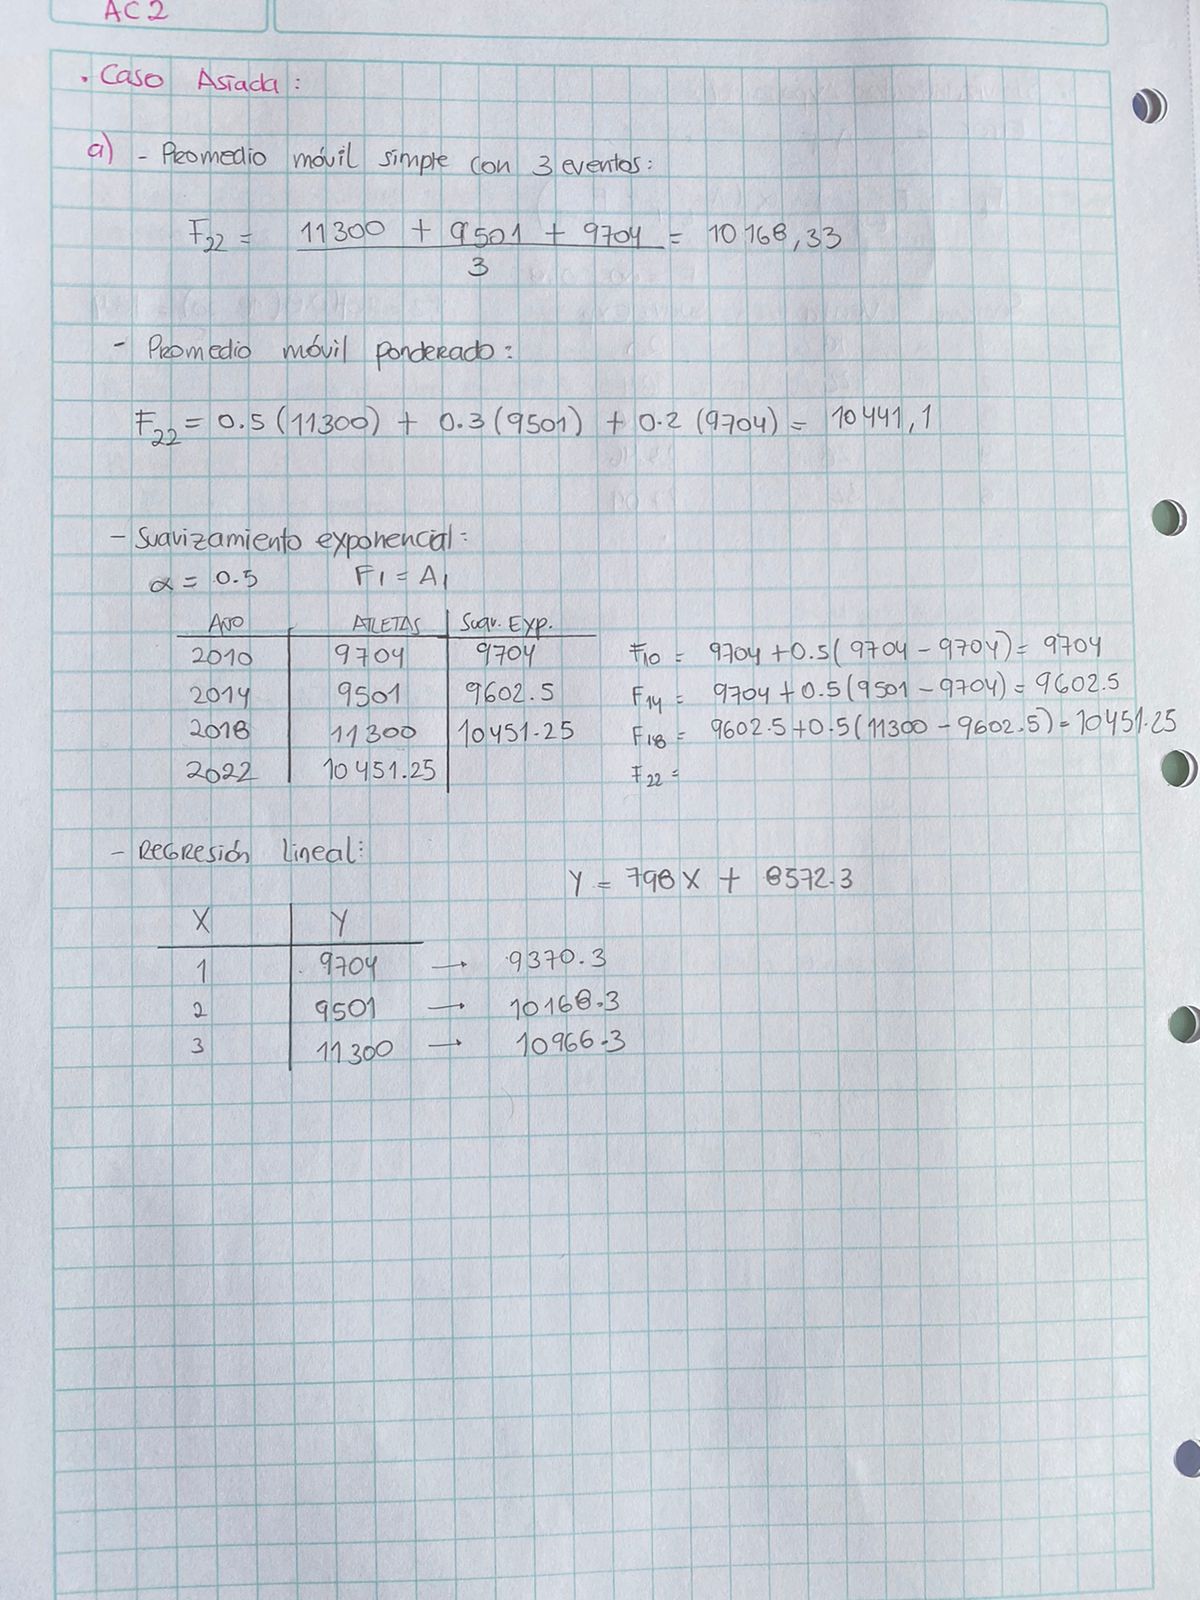 AC2
. Caso Asiada:
a) - Promedio móvil simple con 3 eventos:
F22 = 11300 + 9501 + 9704 = 10168,33
3
- Promedio móvil ponderado:
F22 = 0.5 (11300) + 0.3 (9501) + 0.2 (9704) = 10441,1
- Suavizamiento exponencial:
α = 0.5 F1 = A1
AÑO ATLETAS Suav. Exp.
2010 9704 9704 F10 = 9704 + 0.5 (9704 - 9704) = 9704
2014 9501 9602.5 F14 = 9704 + 0.5 (9501 - 9704) = 9602.5
2018 11300 10451.25 F18 = 9602.5 + 0.5 (11300 - 9602.5) = 10451.25
2022 10451.25 F22 =
- Regresión lineal:
Y = 798X + 8572.3
X Y
1 9704 → 9370.3
2 9501 → 10168.3
3 11300 → 10966.3